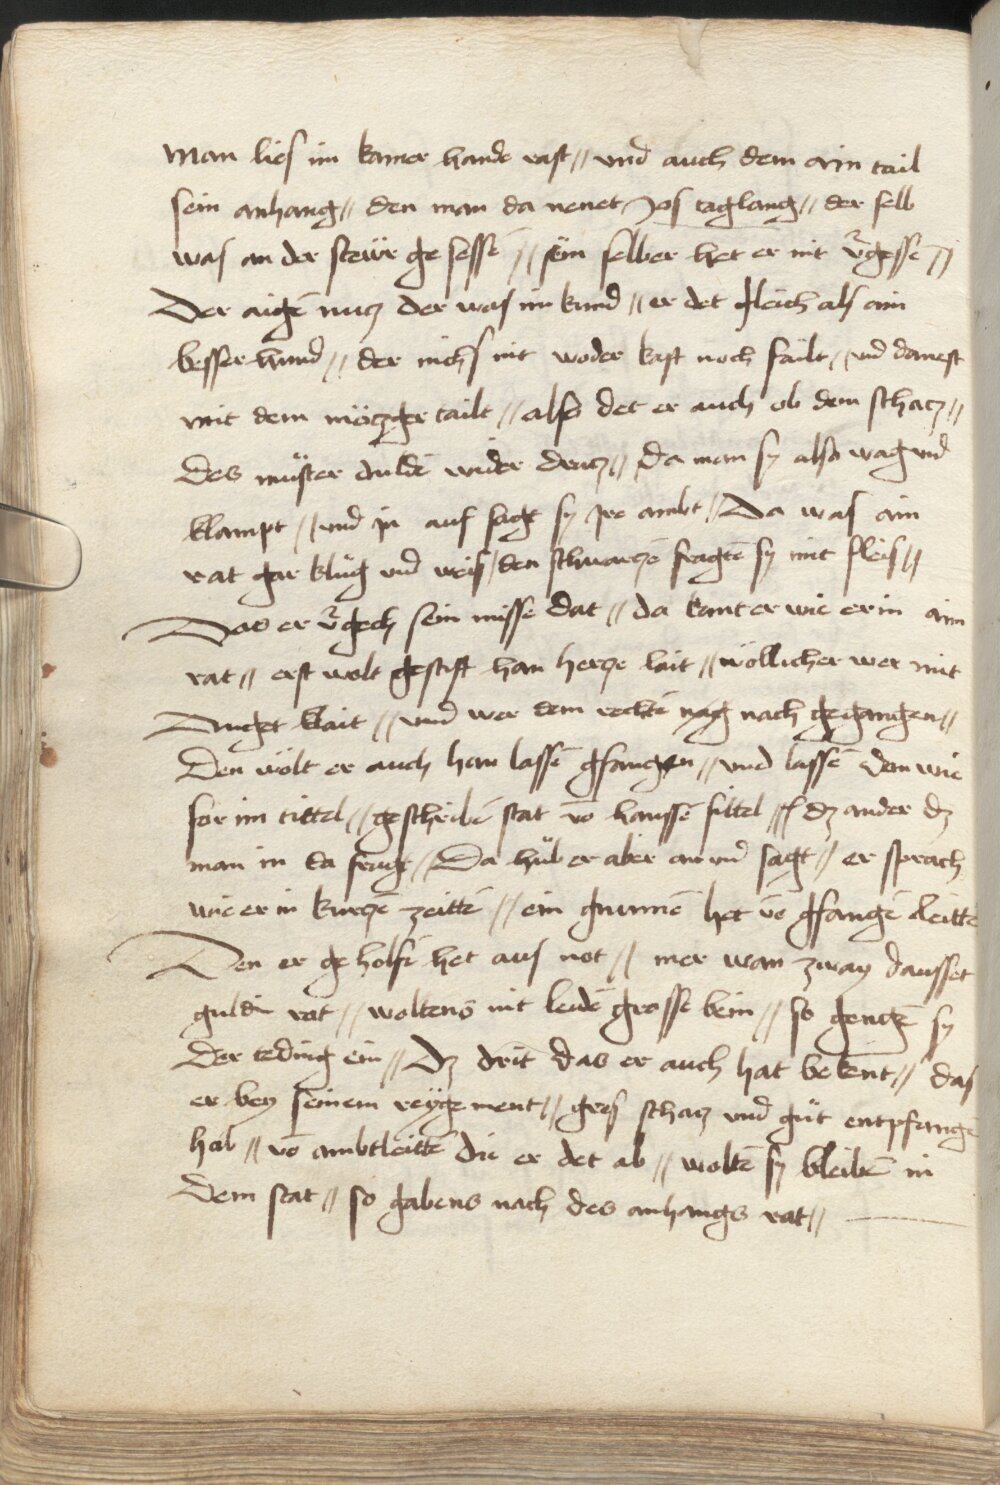 man lies im kamer hande rast // vnd auch dem ain tail
sein anhang // den man da nenet Jos taglang // der selb
was an der steür gesessē // sein selber het er nit v̄gessē //
Der aigē nutz der was im kund // er det gleich als ain
besser hund // der nichs nit weder kast noch failt // vnd danest
mit dem mötzger tailt // also det er auch ob dem schatz //
Des müster duldē wider dratz // da man sy also wag vnd
klampt // vnd jn auf sagt sy jre ambt // Da was ain
rat gar klug vnd weis / den schwartzē fragtē sy mit fleis //
Das er v̄gech sein missedat // da kant er wie er in aim
rat // erst wolt gestift han hertze lait // wöllicher wer mit
Auget klait // vnd wer dem rechtē nag nach gegangen //
Den wölt er auch han lassē gfangen // vnd lassē dan wie
for im tittel // geschribē stat vō hanssē fittel // dz ander dz
man in da fragt / Da hub er aber an vnd sagt // er sprach
wie er in kurtzē zeittē // ein gnumē het vō gfangē leittē
Den er geholfē het aus not // mer wan zway dausset
guldī rot // woltens nit leidē grosse bein // so gentzē sy
der teding ein // Dz drit das er auch hat bekent // das
er bey seinem reygement // gros schatz vnd güt entpfangē
hab // vō ambtleittē die er det ab // woltē sy bleibē in
dem stat // so gabens nach des anhangs rat //